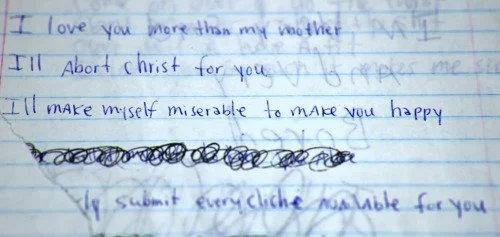 I love you more than my mother
I'll Abort Christ for you
I'll make myself miserable to make you happy
submit every cliche available for you